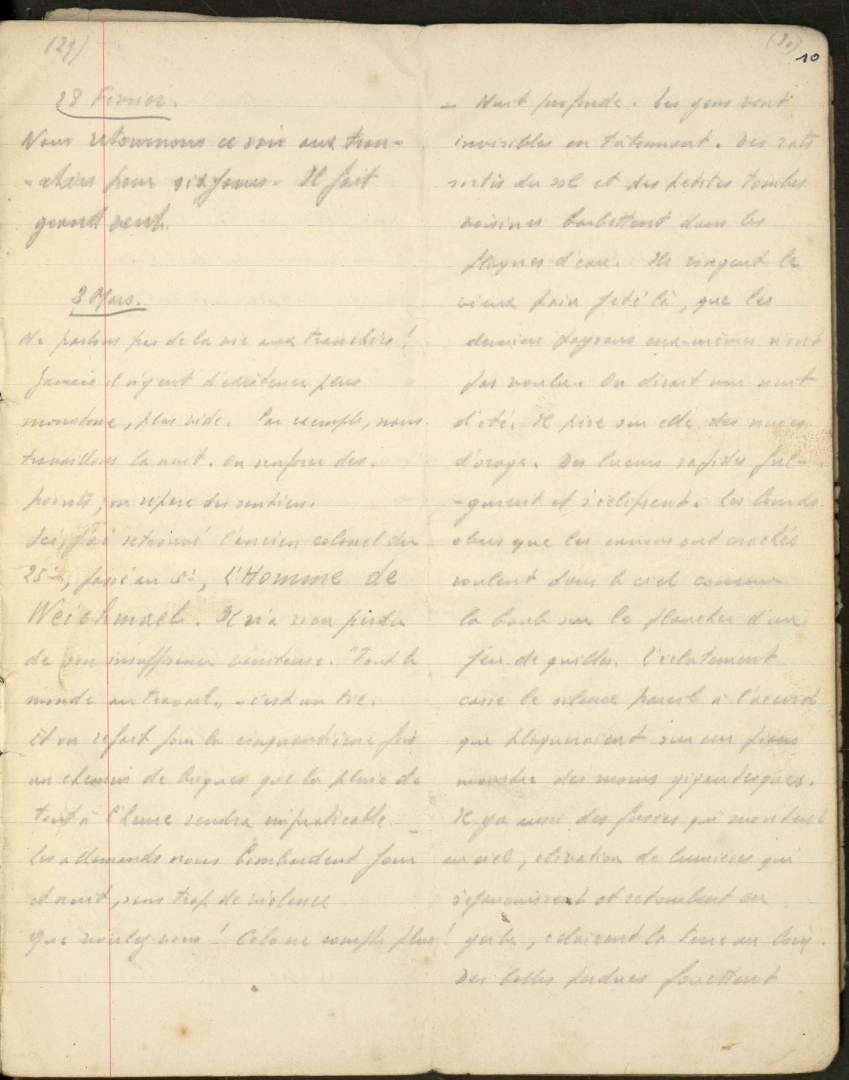 (29)
28 Fevrier.
Nous retournons ce soir aux tran-
-chées pour six jours. Il fait
grand vent.
3 Mars.
Ne parlons pas de la vie aux tranchées !
Jamais il n'y eut d'existence plus
monotone, plus vide. Par exemple, nous
travaillons la nuit. On renforce des
points, on répare des sentiers.
Ici, j'ai retrouvé l'ancien colonel du
25e, passé au 5e, l'Homme de
Il n'a rien perdu
de son insuffisance vaniteuse. "Tout le
monde au travail" - c'est un tic.
Et on refait pour la cinquantième fois
un chemin de briques que la pluie de
tout à l'heure rendra impraticable.
Les allemands nous bombardent jour
et nuit, sans trop de violence
Que voulez vous ! Cela ne compte plus !
(30)
10
- Nuit profonde. Les gens vont
invisibles en tâtonnant. Des rats
sortis du sol et des petites tombes
voisines barbottent dans les
flaques d'eau. Ils rongent le
vieux pain jeté là, que les
derniers eux-mêmes n'ont
pas voulu. On dirait une nuit
d'été. Il pèse sur elle des nuées
d'orage. Des lueurs rapides ful-
-gurent et s'éclipsent. Les lourds
obus que les canons ont crachés
roulent dans le ciel comme
la boule sur le plancher d'un
jeu de quilles. L'éclatement
casse le silence pareil à l'accord
que plaqueraient sur un piano
monstre des mains gigantesques.
Il y a aussi des fusées qui montent
au ciel, élévation de lumières qui
s'épanouissent et retombent en
gerbe, éclairant la terre au loin.
Des balles perdues fouettent